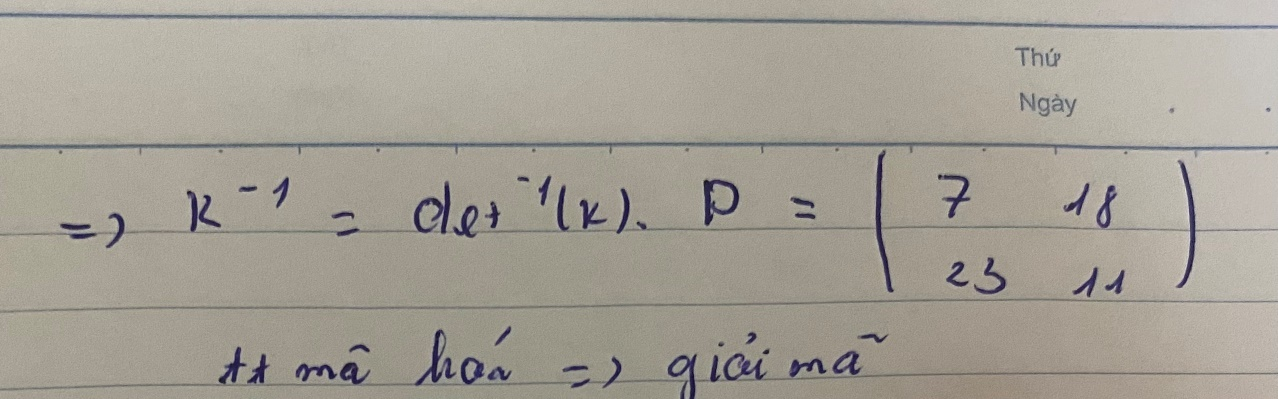 Thứ
Ngày
=> K⁻¹ = det⁻¹(K). D = ( 7 18
23 11 )
** mã hoá => giải mã